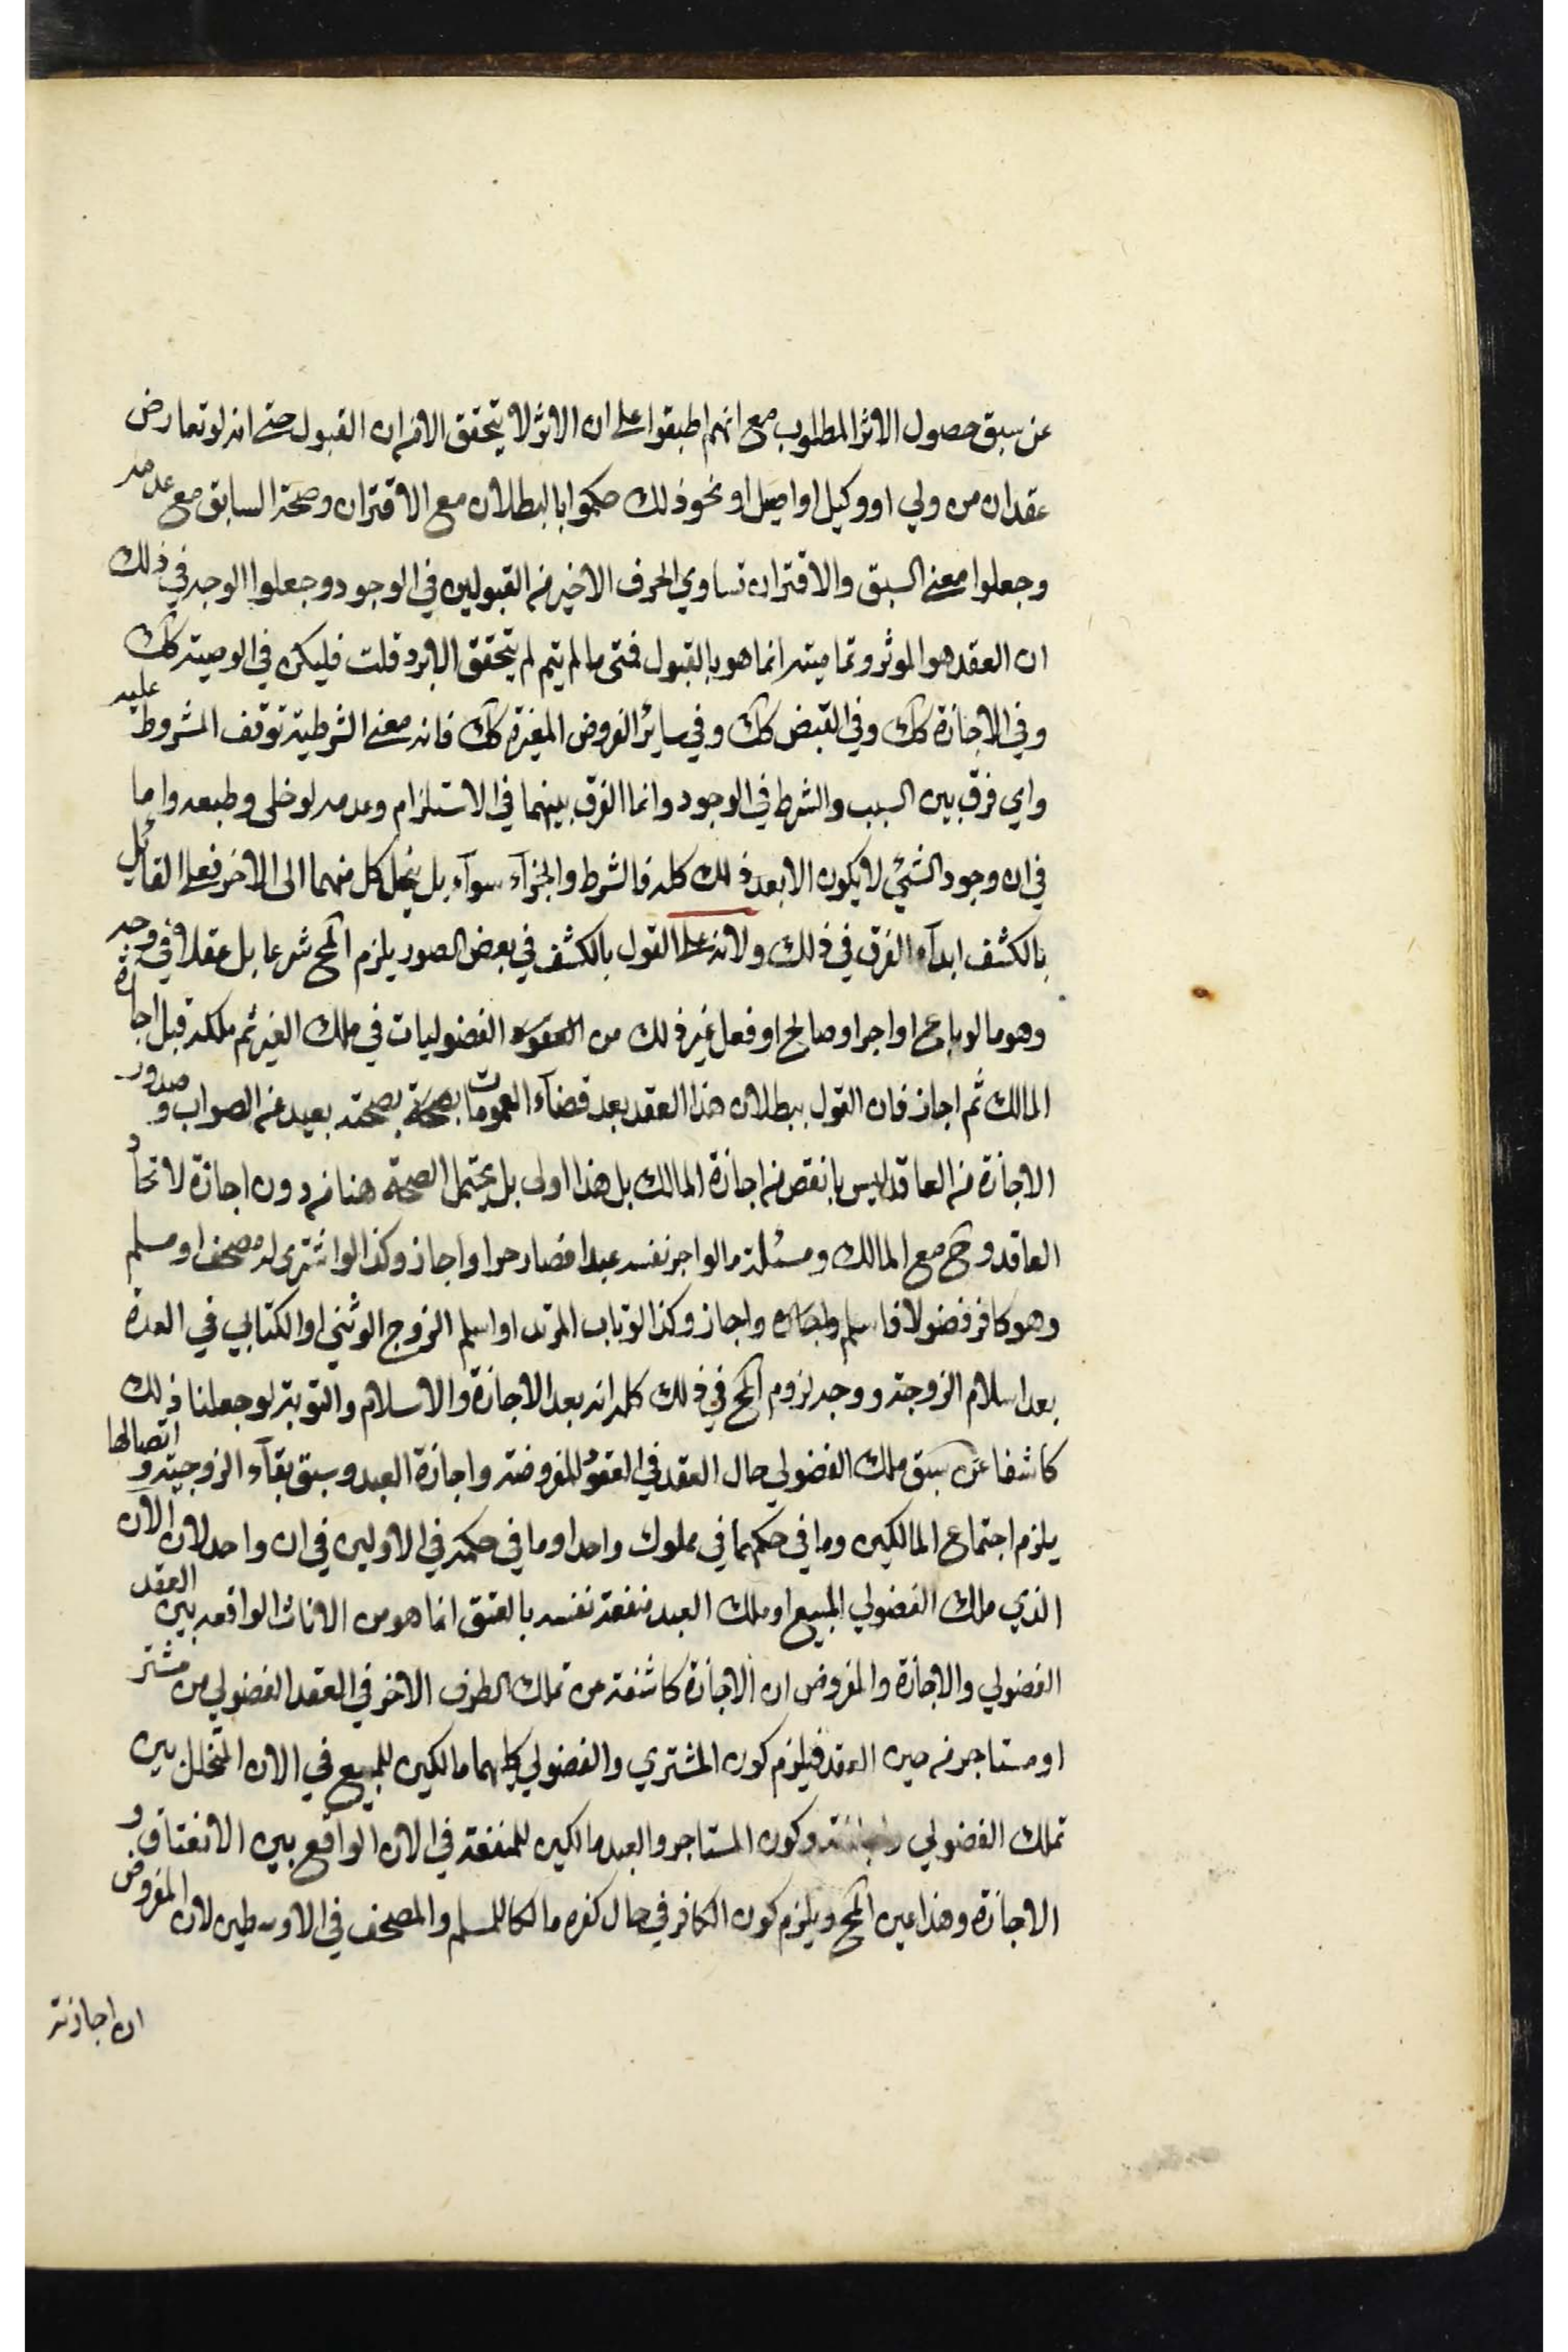 عن سبق حصول الاثر المطلوب مع انهم اطبقوا على ان الاثر لا يتحقق الا من ان القبول حتى انه لو تعارض
عقدان من ولي او وكيل او اصيل او نحو ذلك حكموا بالبطلان مع الاقتران وصحة السابق مع عدمه
وجعلوا معنى السبق والاقتران تساوي الحرف الاخير من القبولين في الوجود وجعلوا الوجه في ذلك
ان العقد هو الموثر وتماميته انما هو بالقبول فمتى ما لم يتم لم يتحقق الاثر قلت فليكن في الوصية كك
وفي الاجازة كك وفي القبض كك وفي ساير الفروض كك فانه معنى الشرطية توقف المشروط عليه
واي فرق بين السبب والشرط في الوجود وانما الفرق بينهما في الاستلزام وعدمه لو خلى وطبعه واما
في ان وجود الشئ لا يكون الا بعد ذلك كله فالشرط والجزاء سواء بل ينحل كل منهما الى الاخر فعلى القائل
بالكشف ابداء الفرق في ذلك ولانه على القول بالكشف في بعض الصور يلزم المح شرعا بل عقلا في وجه
وهو ما لو باع او اجر او صالح او فعل غير ذلك من العقود الفضوليات في ملك الغير ثم ملكه قبل اجازة
المالك ثم اجاز فان القول ببطلان هذا العقد بعد قضاء العمومات بصحته بعيد عن الصواب وصدور
الاجازة من العاقد ليس بانقص من اجازة المالك بل هذا اولى بل يحتمل الصحة هنا من دون اجازة لاتحاد
العاقد وح مع المالك ومسئلة ما لو اجر نفسه عبدا فصار حرا واجاز وكذا لو اشترى له مصحف او مسلم
وهو كافر فضولا فاسلم واجاز وكذا لو تاب المرتد او اسلم الزوج الوثني او الكتابي في العدة
بعد اسلام الزوجة ووجه لزوم المح في ذلك كله انه بعد الاجازة والاسلام والتوبة لو جعلنا ذلك
كاشفا عن سبق ملك الفضولي حال العقد في العقود المفروضة واجازة العبد وسبق بقاء الزوجية واتصالها
يلزم اجتماع المالكين وما في حكمهما في مملوك واحد او ما في حكمه في الاولين في ان واحد لان الان
الذي ملك الفضولي المبيع او ملك العبد منفعة نفسه بالعتق انما هو من الانات الواقعة بين العقد
الفضولي والاجازة والمفروض ان الاجازة كاشفة عن تملك الطرف الاخر في العقد الفضولي من مشتر
او مستاجر من حين العقد فيلزم كون المشتري والفضولي كليهما مالكين للمبيع في الان المتخلل بين
تملك الفضولي واجازته وكون المستاجر والعبد مالكين للمنفعة في الان الواقع بين الانعتاق و
الاجازة وهذا عين المح ويلزم كون الكافر في حال كفره مالكا للمسلم والمصحف في الاوسطين لان المفروض
ان اجازته